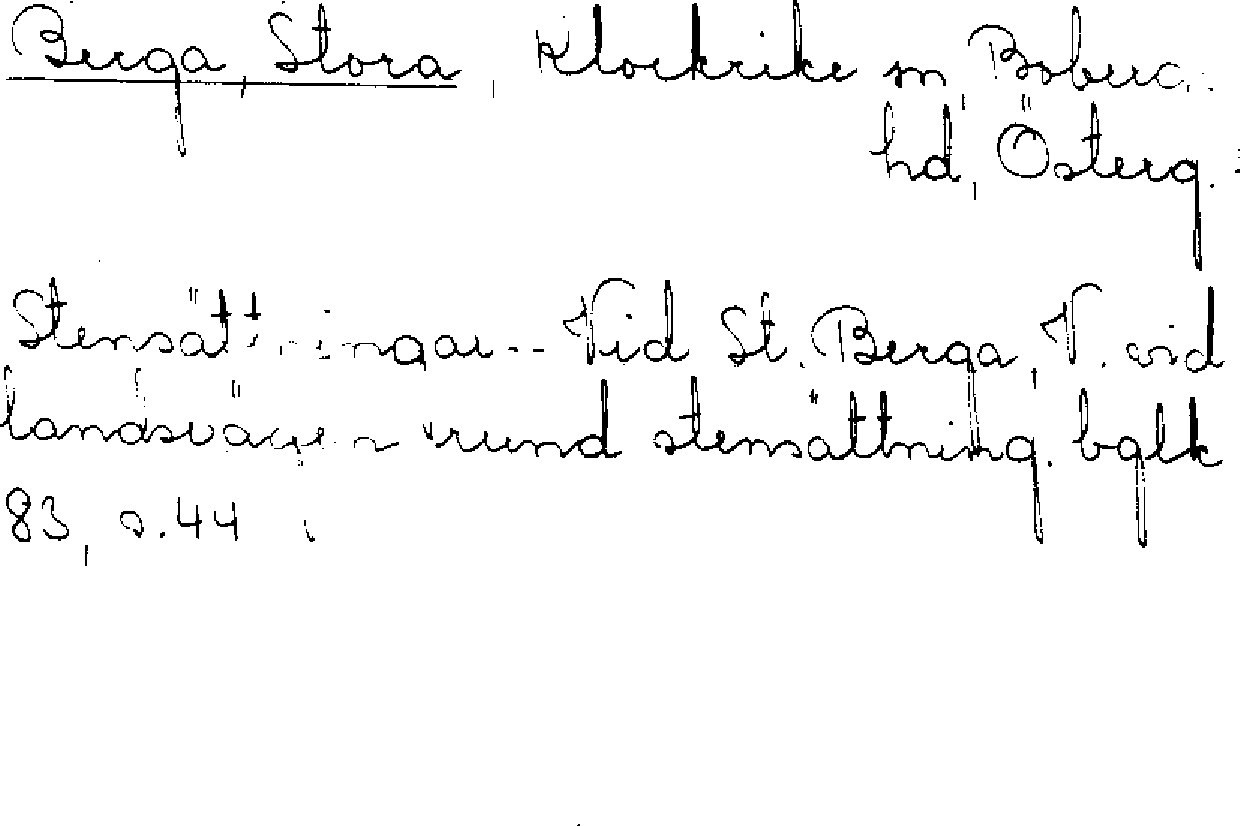 Berga, Stora, Klockrike sn, Boberg.
hd, Österg.
Stensättningar.- Vid St. Berga, V. vid
landsvägen rund stensättning. bglk
83, s. 44